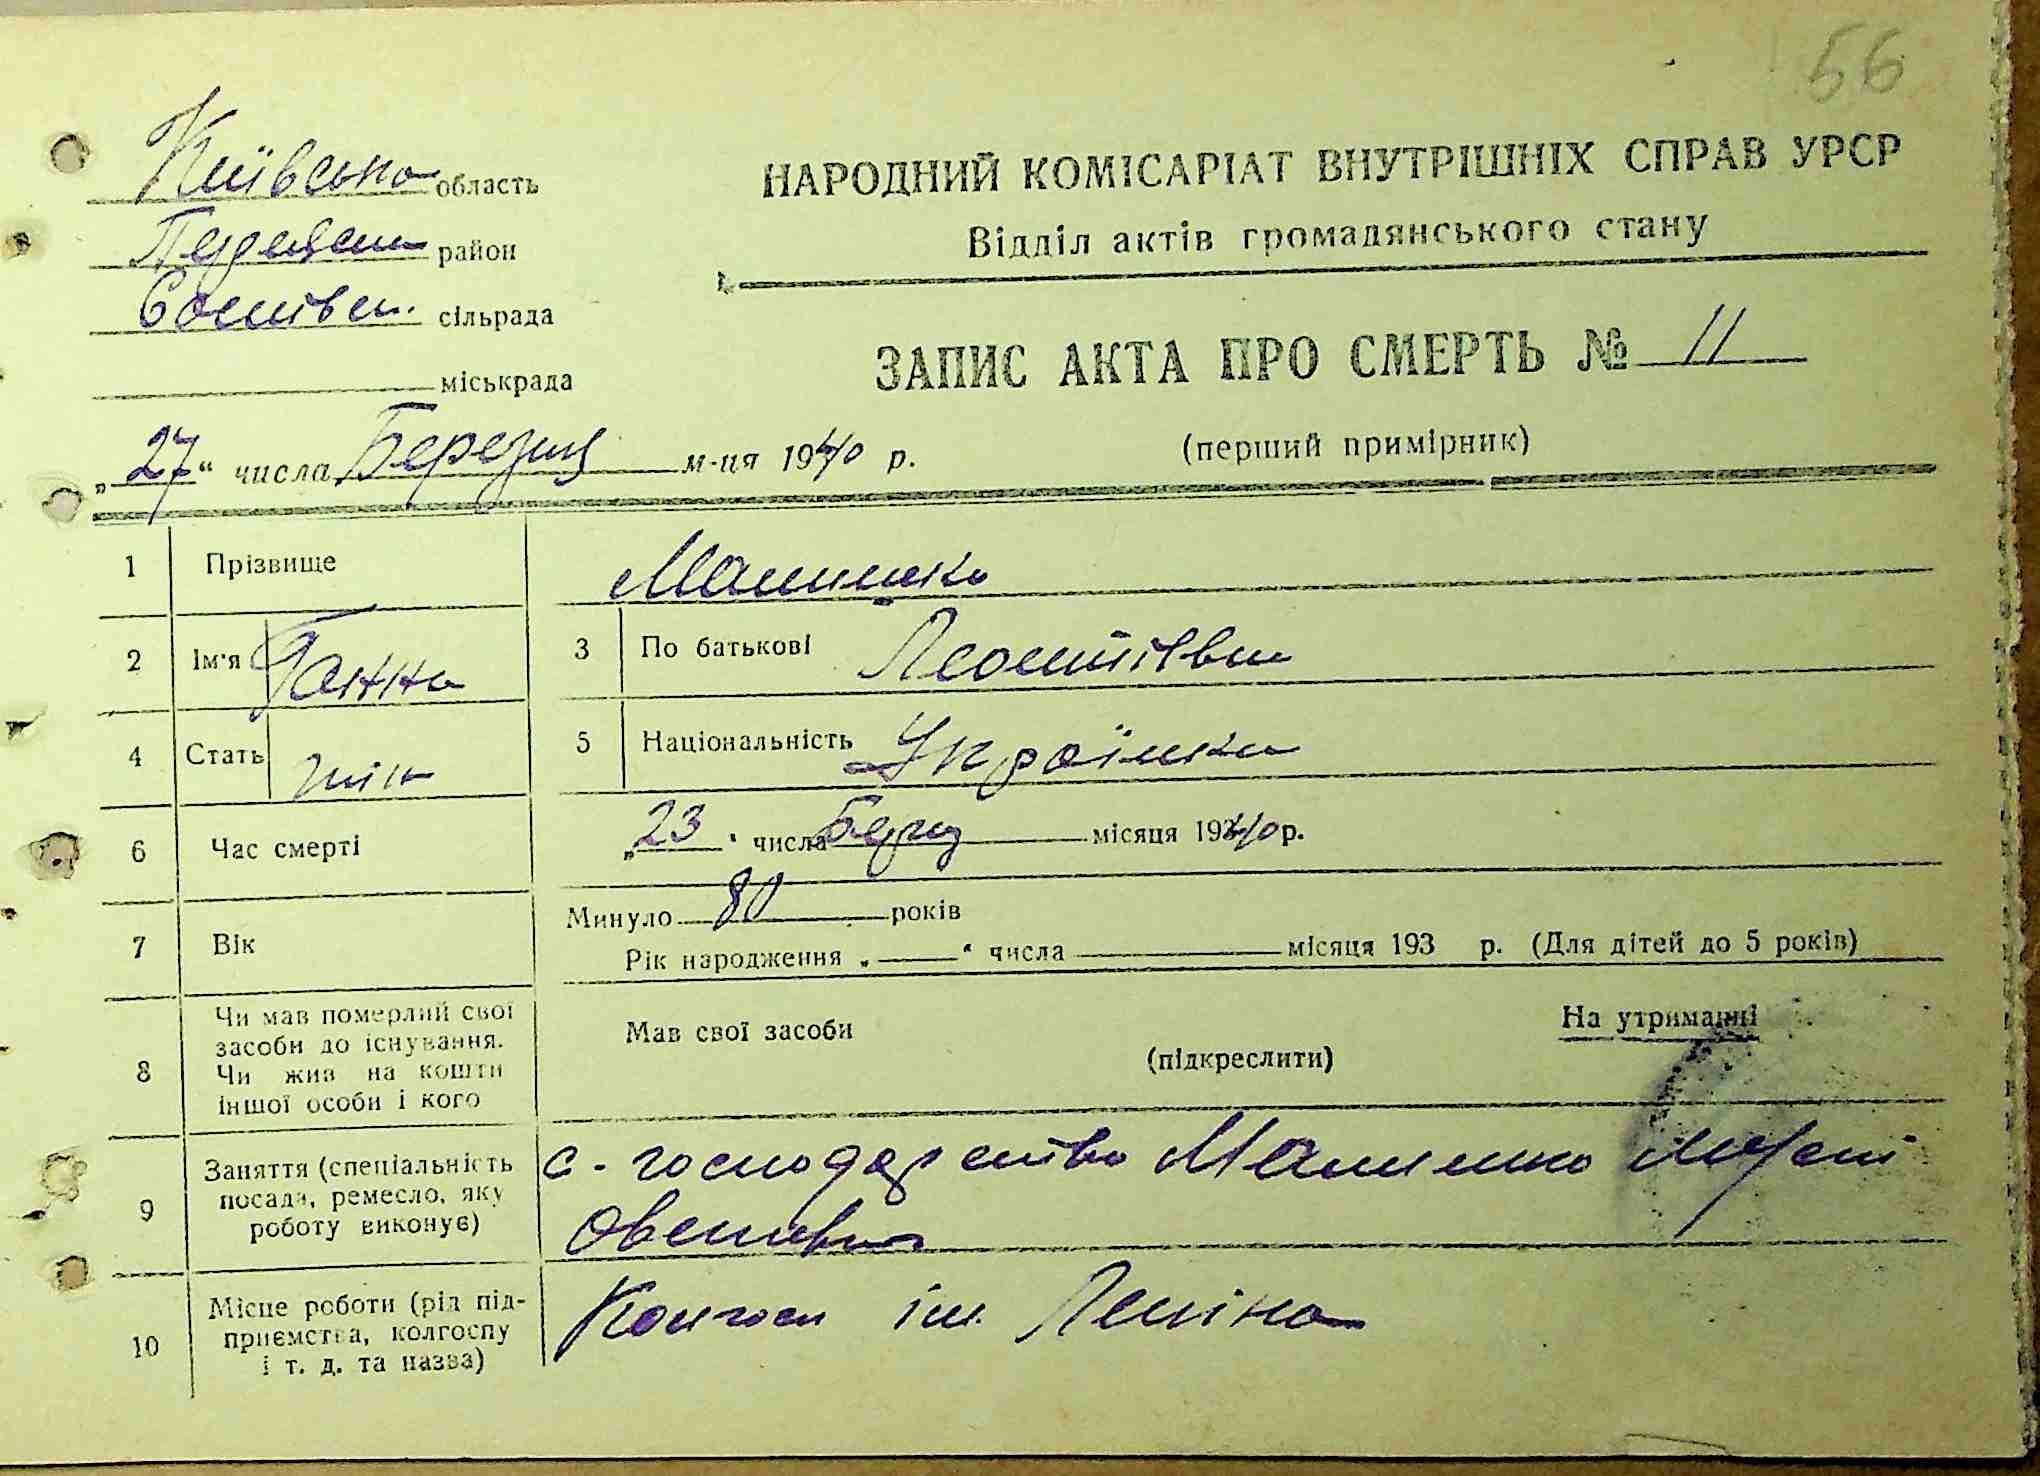 56
Київська область
район
сільрада
міськрада
НАРОДНИЙ КОМІСАРІАТ ВНУТРІШНІХ СПРАВ УРСР
Відділ актів громадянського стану
ЗАПИС АКТА ПРО СМЕРТЬ № 11
(перший примірник)
„27“ числа Березня м-ця 1940 р.
1 Прізвище
2 Ім'я Ганна 3 По батькові Леонтіівна
4 Стать жін 5 Національність Українка
6 Час смерті „23“ числа Берзня місяця 1940 р.
7 Вік Минуло 80 років
Рік народження „ “ числа місяця 193 р. (Для дітей до 5 років)
8 Чи мав померлий свої
засоби до існування.
Чи жив на кошти
іншої особи і кого
Мав свої засоби На утриманні
(підкреслити)
9 Заняття (спеціальність
посада, ремесло, яку
роботу виконує)
с-господарство
10 Місце роботи (рід під-
приємства, колгоспу
і т. д. та назва)
Колгосп ім. Леніна